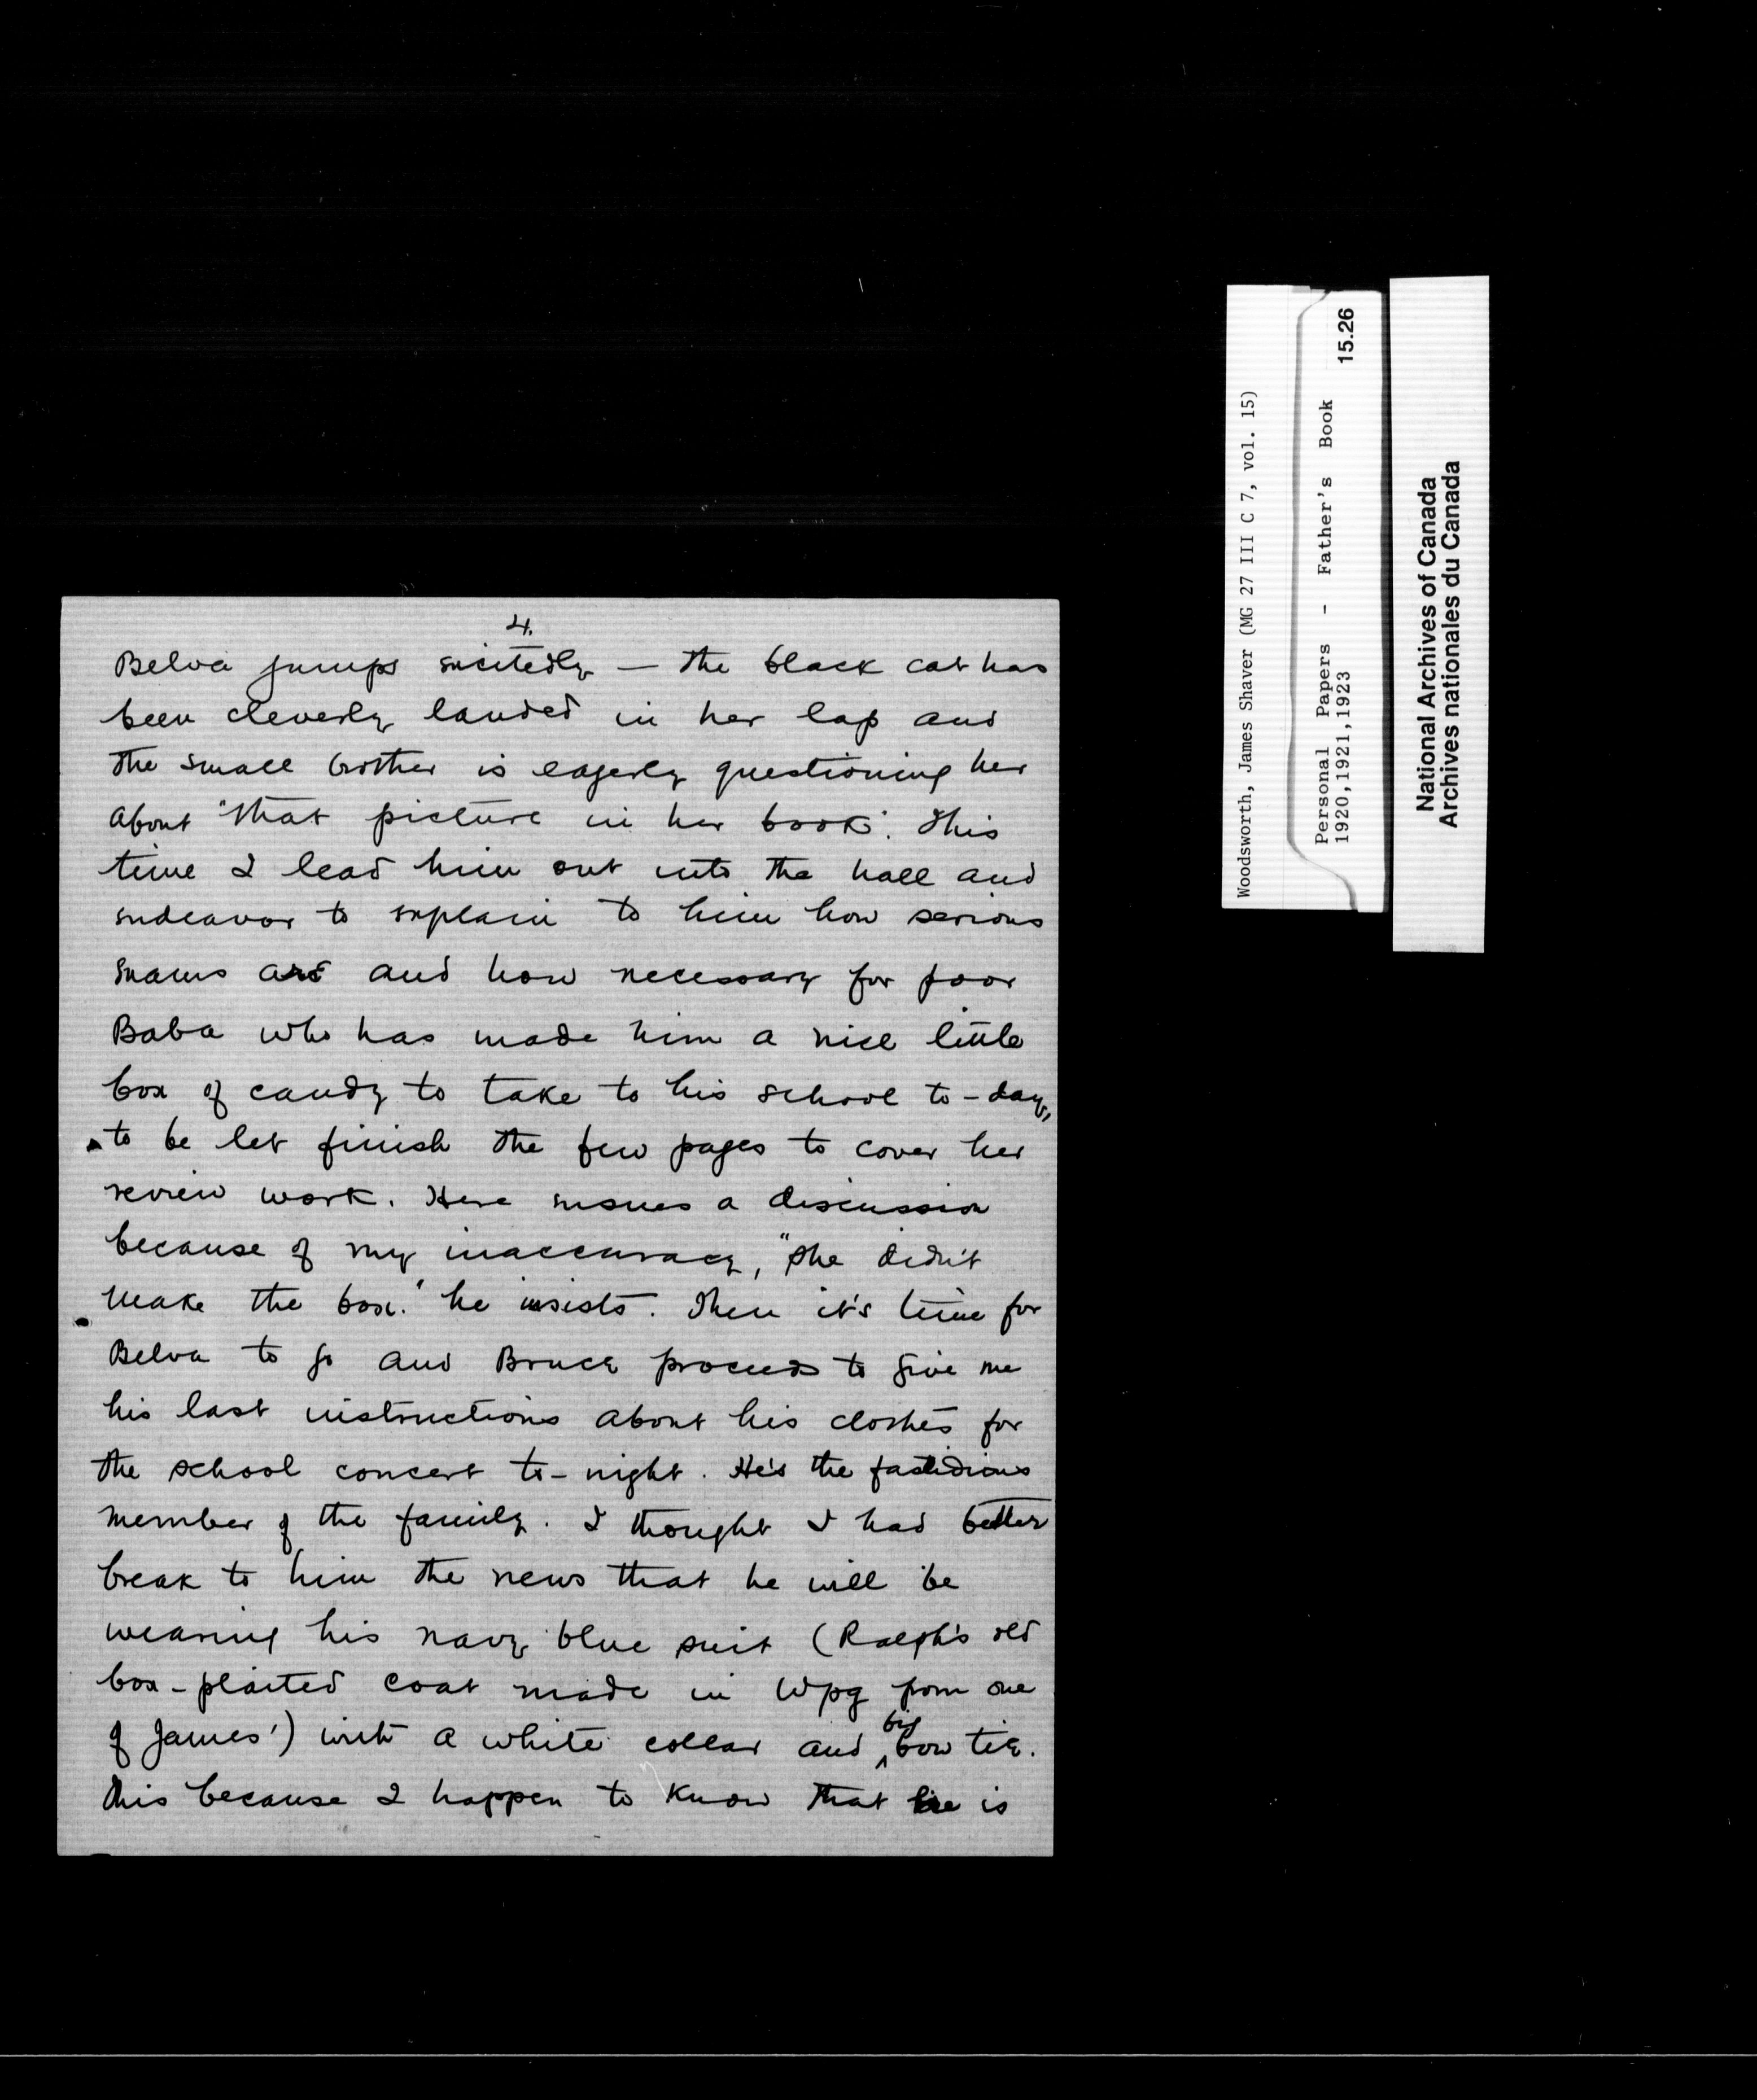 4.
Belva jumps excitedly — the black cat has
been cleverly landed in her lap and
the small brother is eagerly questioning her
about "that picture in her book". This
time I lead him out into the hall and
endeavor to explain to him how serious
exams are and how necessary for poor
Baba who has made him a nice little
box of candy to take to his school to-day,
to be let finish the few pages to cover her
review work. Here ensues a discussion
because of my inaccuracy, "She didn't
make the box." he insists. Then it's time for
Belva to go and Bruce proceeds to give me
his last instructions about his clothes for
the school concert to-night. He's the fastidious
member of the family. I thought I had better
break to him the news that he will be
wearing his navy blue suit (Ralph's old
box-plaited coat made in Wpg from one
of James') with a white collar and big bow tie.
This because I happen to know that he is
Woodsworth, James Shaver (MG 27 III C 7, vol. 15)
Personal Papers - Father's Book 15.26
1920,1921,1923
National Archives of Canada
Archives nationales du Canada